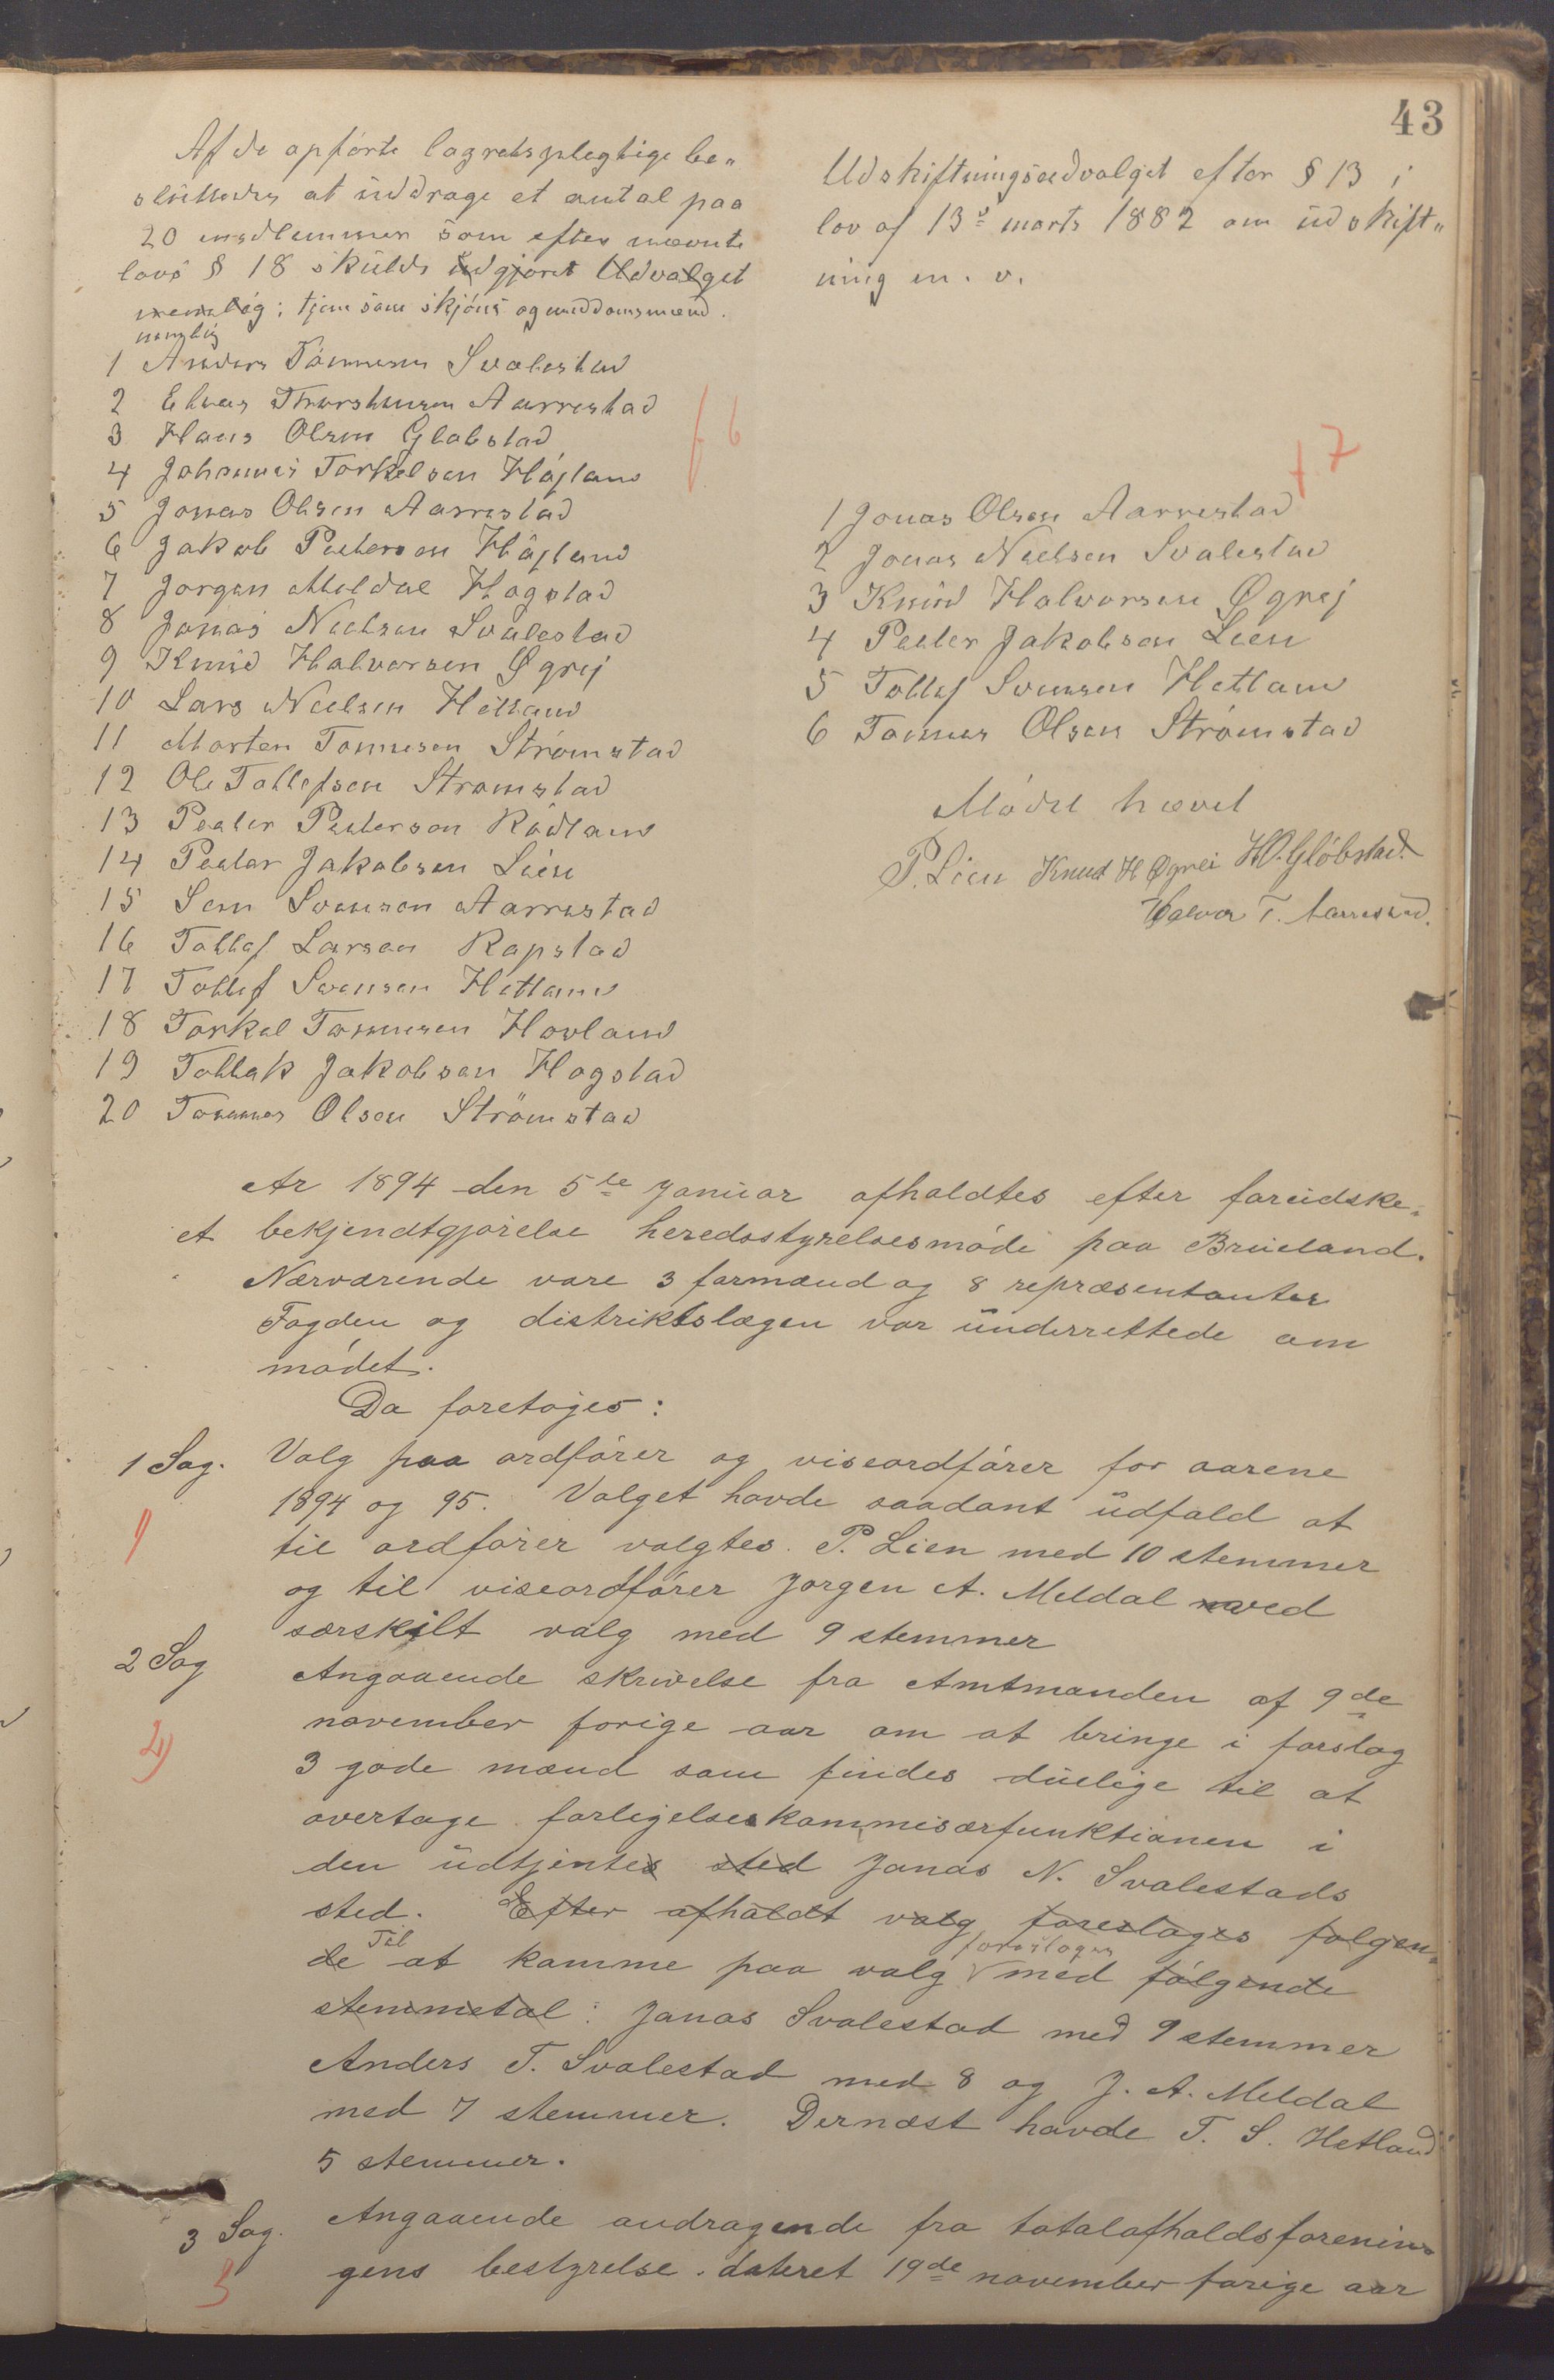 43
Af de opførte lagretspligtige be„
sluttedes at inddrage et antal paa
20 medlemmer som efter nævnte
lovs § 18 skulde udgjøret Udvalget
nemlig: tjene som skjøns og meddomsmænd.
nemlig
1 Anders Tønnesen Svalestad
2 Elias Thorstensen Aarrestad
3 Hans Olsen Gløbstad
4 Johannes Torkelsen Høiland
5 Jonas Olsen Aarrestad
6 Jakob Pedersen Høiland
7 Jørgen Meldal Hogstad
8 Jonas Nielsen Svalestad
9 Knud Halvorsen Øgrej
10 Lars Nielsen Hetland
11 Morten Tønnesen Strømstad
12 Ole Tollefsen Strømstad
13 Peder Pedersen Rødland
14 Peder Jakobsen Lien
15 Sem Svensen Aarrestad
16 Tollef Larsen Rapstad
17 Tollef Svensen Hetland
18 Torkel Tønnesen Hovland
19 Tollak Jakobsen Hogstad
20 Tønnes Olsen Strømstad
f 6
Udskiftningsudvalget efter § 13 i
lov af 13de marts 1882 om udskift„
ning m. v.
f 7
1 Jonas Olsen Aarrestad
2 Jonas Nielsen Svalestad
3 Knud Halvorsen Øgrej
4 Peder Jakobsen Lien
5 Tollef Svensen Hetland
6 Tønnes Olsen Strømstad
Mødet hævet
P. Lien Knud H Øgrei H.O. Gløbstad.
Halvor T. Aarrestad.
Ar 1894 den 5te januar afholdtes efter forudske„
et bekjendtgjørelse heredsstyrelsesmøde paa Brueland.
Nærværende vare 3 formænd og 8 repræsentanter
Fogden og distriktslægen var underrettede om
mødet.
Da foretoges:
1 Sag. Valg paa ordfører og viseordfører for aarene
1894 og 95. Valget havde saadant udfald at
1)
til ordfører valgtes P. Lien med 10 stemmer
og til viseordfører Jørgen A. Meldal ved
særskilt valg med 9 stemmer
2 Sag Angaaende skrivelse fra Amtmanden af 9de
november forige aar om at bringe i forslag
2)
3 gode mænd som findes duelige til at
overtage forligelseskommisærfunktionen i
den udtjentes sted Jonas N. Svalestads
sted. Efter afholdt valg foreslages følgen„
de Til at komme paa valg foreslages med følgende
stemmetal: Jonas Svalestad med 9 stemmer
Anders T. Svalestad med 8 og J. A. Meldal
med 7 stemmer. Dernæst havde T. S. Hetland
5 stemmer.
3 Sag. Angaaende andragende fra totalafholdsforenin„
3
gens bestyrelse dateret 19de november forige aar